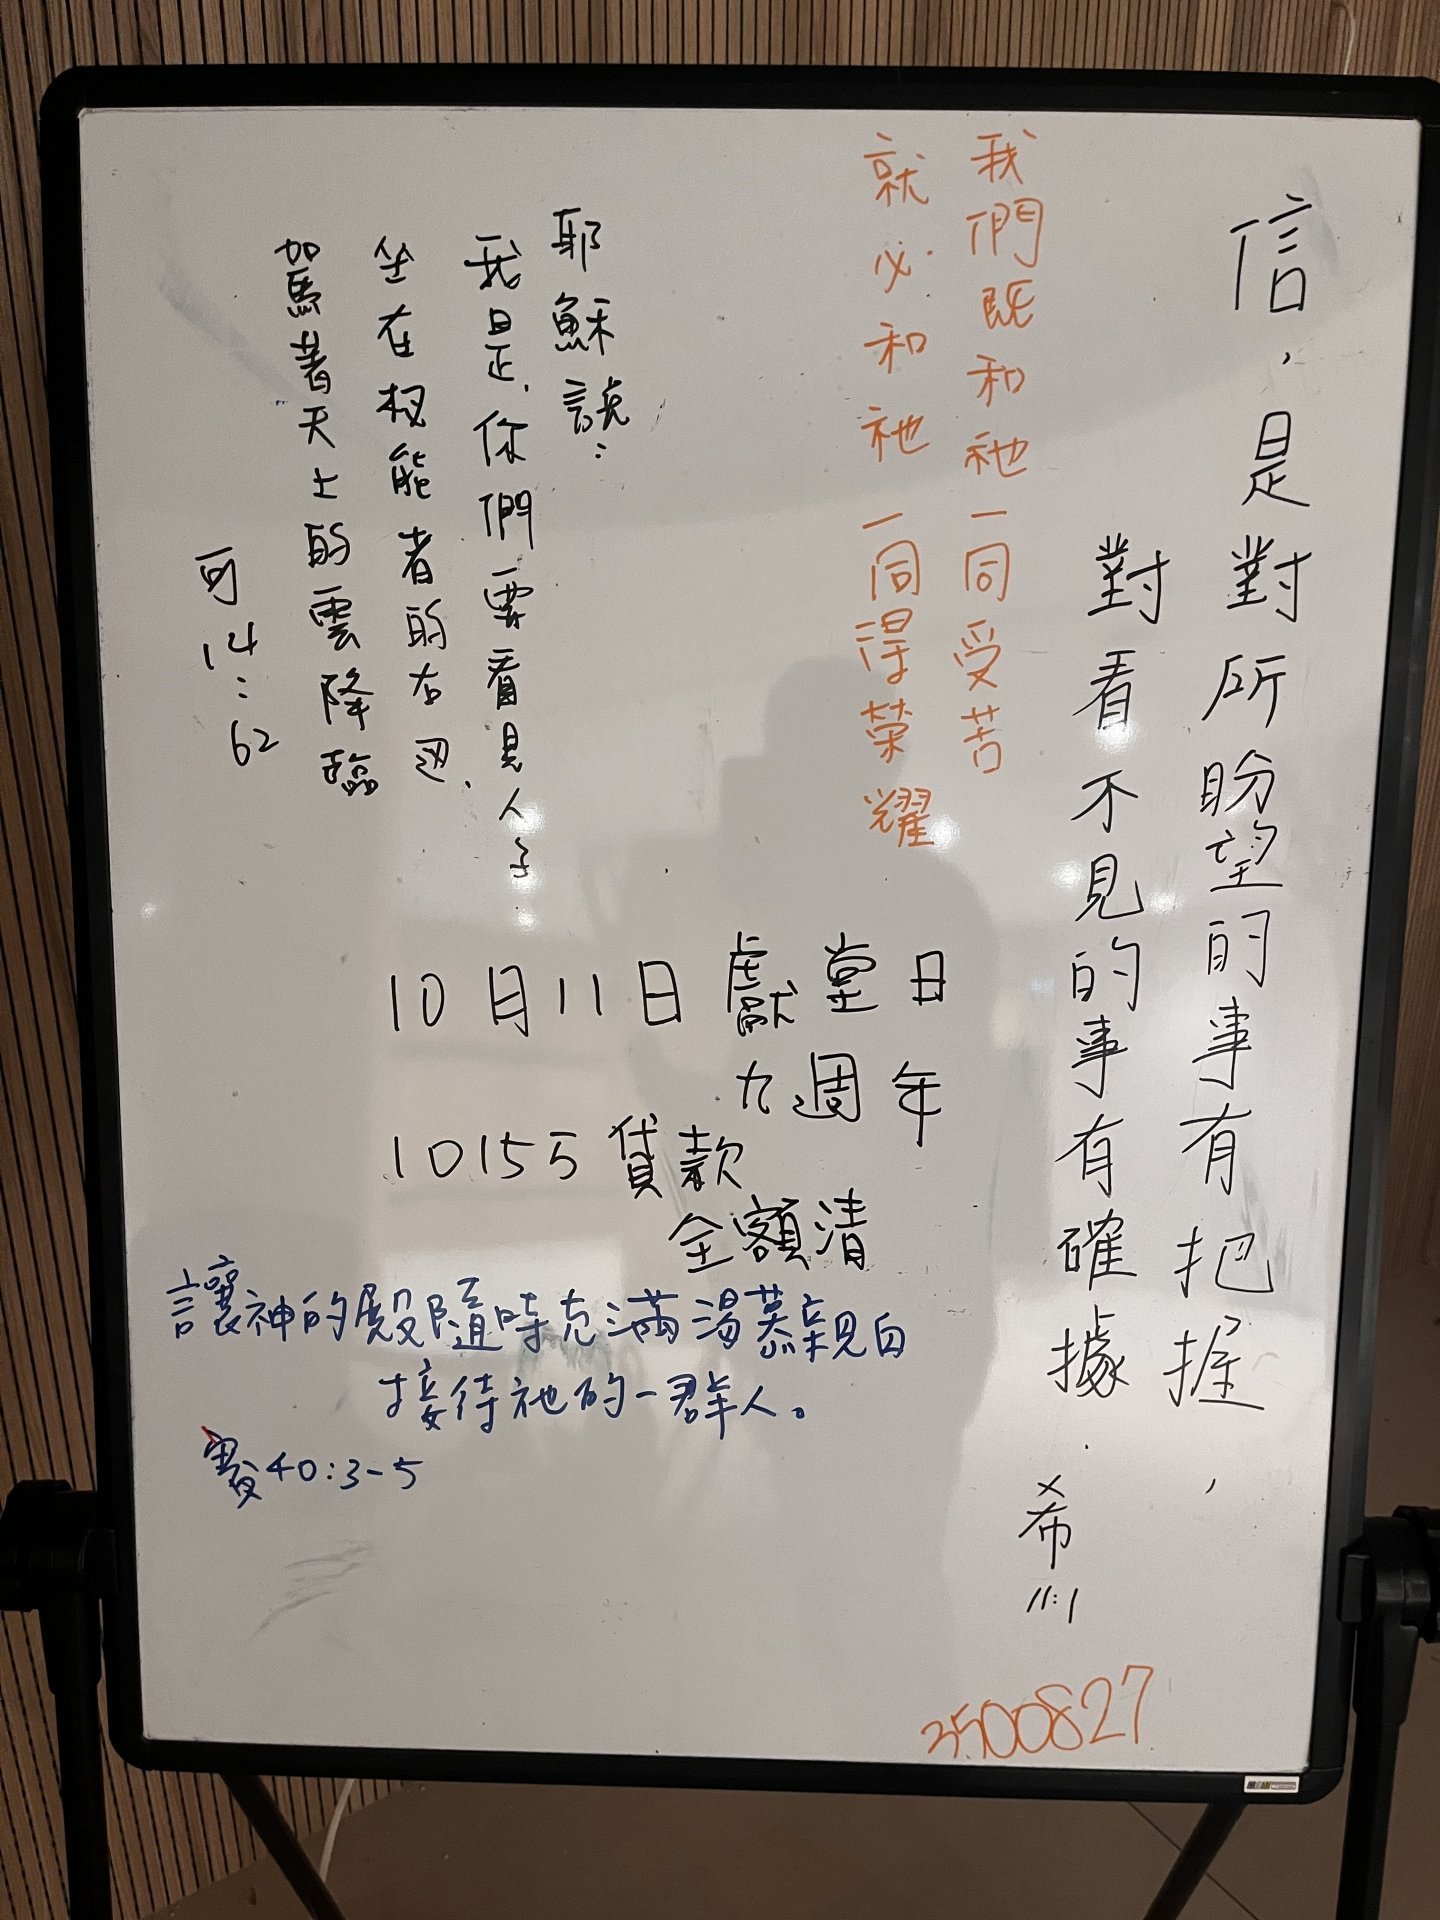 信，是對所盼望的事有把握，
對看不見的事有確據．
希 11:1
我們既和祂一同受苦
就必和祂一同得榮耀
耶穌說：
我是．你們要看見人子
坐在权能者的右边．
駕著天上的雲降臨
可 14：62
10月11日獻堂日
九週年
10155貸款
全額清
讓神的殿隨時充滿渴慕親自
接待祂的一群人。
賽40:3-5
3500827